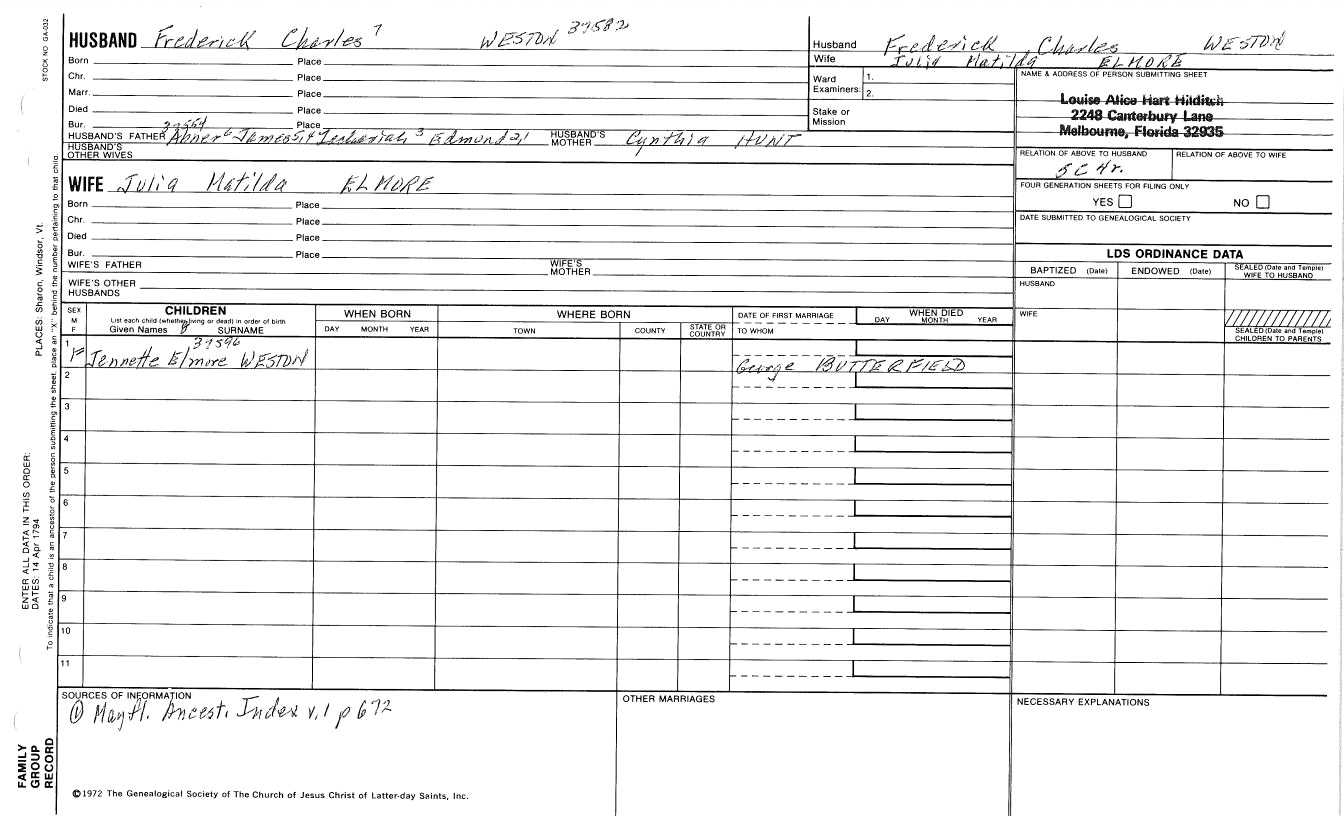 STOCK NO GA-032
HUSBAND Frederick Charles 7 WESTON 37582
Born Place
Chr. Place
Marr. Place
Died Place
Bur. Place
HUSBAND'S FATHER Abner 6 James 5,4 Zechariah 3 Edmund 2,1 HUSBAND'S MOTHER Cynthia HUNT
HUSBAND'S OTHER WIVES
WIFE Julia Matilda ELMORE
Born Place
Chr. Place
Died Place
Bur. Place
WIFE'S FATHER WIFE'S MOTHER
WIFE'S OTHER HUSBANDS
Husband Frederick Charles WESTON
Wife Julia Matilda ELMORE
Ward Examiners: 1.
2.
Stake or Mission
NAME & ADDRESS OF PERSON SUBMITTING SHEET
Louise Alice Hart Hilditch
2248 Canterbury Lane
Melbourne, Florida 32935
RELATION OF ABOVE TO HUSBAND RELATION OF ABOVE TO WIFE
5C 4r.
FOUR GENERATION SHEETS FOR FILING ONLY
YES NO
DATE SUBMITTED TO GENEALOGICAL SOCIETY
LDS ORDINANCE DATA
BAPTIZED (Date) ENDOWED (Date) SEALED (Date and Temple) WIFE TO HUSBAND
HUSBAND
WIFE
SEALED (Date and Temple) CHILDREN TO PARENTS
SEX M F
CHILDREN
List each child (whether living or dead) in order of birth
Given Names 8 SURNAME
WHEN BORN
DAY MONTH YEAR
WHERE BORN
TOWN COUNTY STATE OR COUNTRY
DATE OF FIRST MARRIAGE
TO WHOM
WHEN DIED
DAY MONTH YEAR
37596
1 F Jennette Elmore WESTON George BUTTERFIELD
2
3
4
5
6
7
8
9
10
11
SOURCES OF INFORMATION
① Mayfl. Ancest. Index v.1 p 672
OTHER MARRIAGES
NECESSARY EXPLANATIONS
©1972 The Genealogical Society of The Church of Jesus Christ of Latter-day Saints, Inc.
PLACES: Sharon, Windsor, Vt.
ENTER ALL DATA IN THIS ORDER:
DATES: 14 Apr 1794
To indicate that a child is an ancestor of the person submitting the sheet, place an "X" behind the number pertaining to that child.
FAMILY
GROUP
RECORD